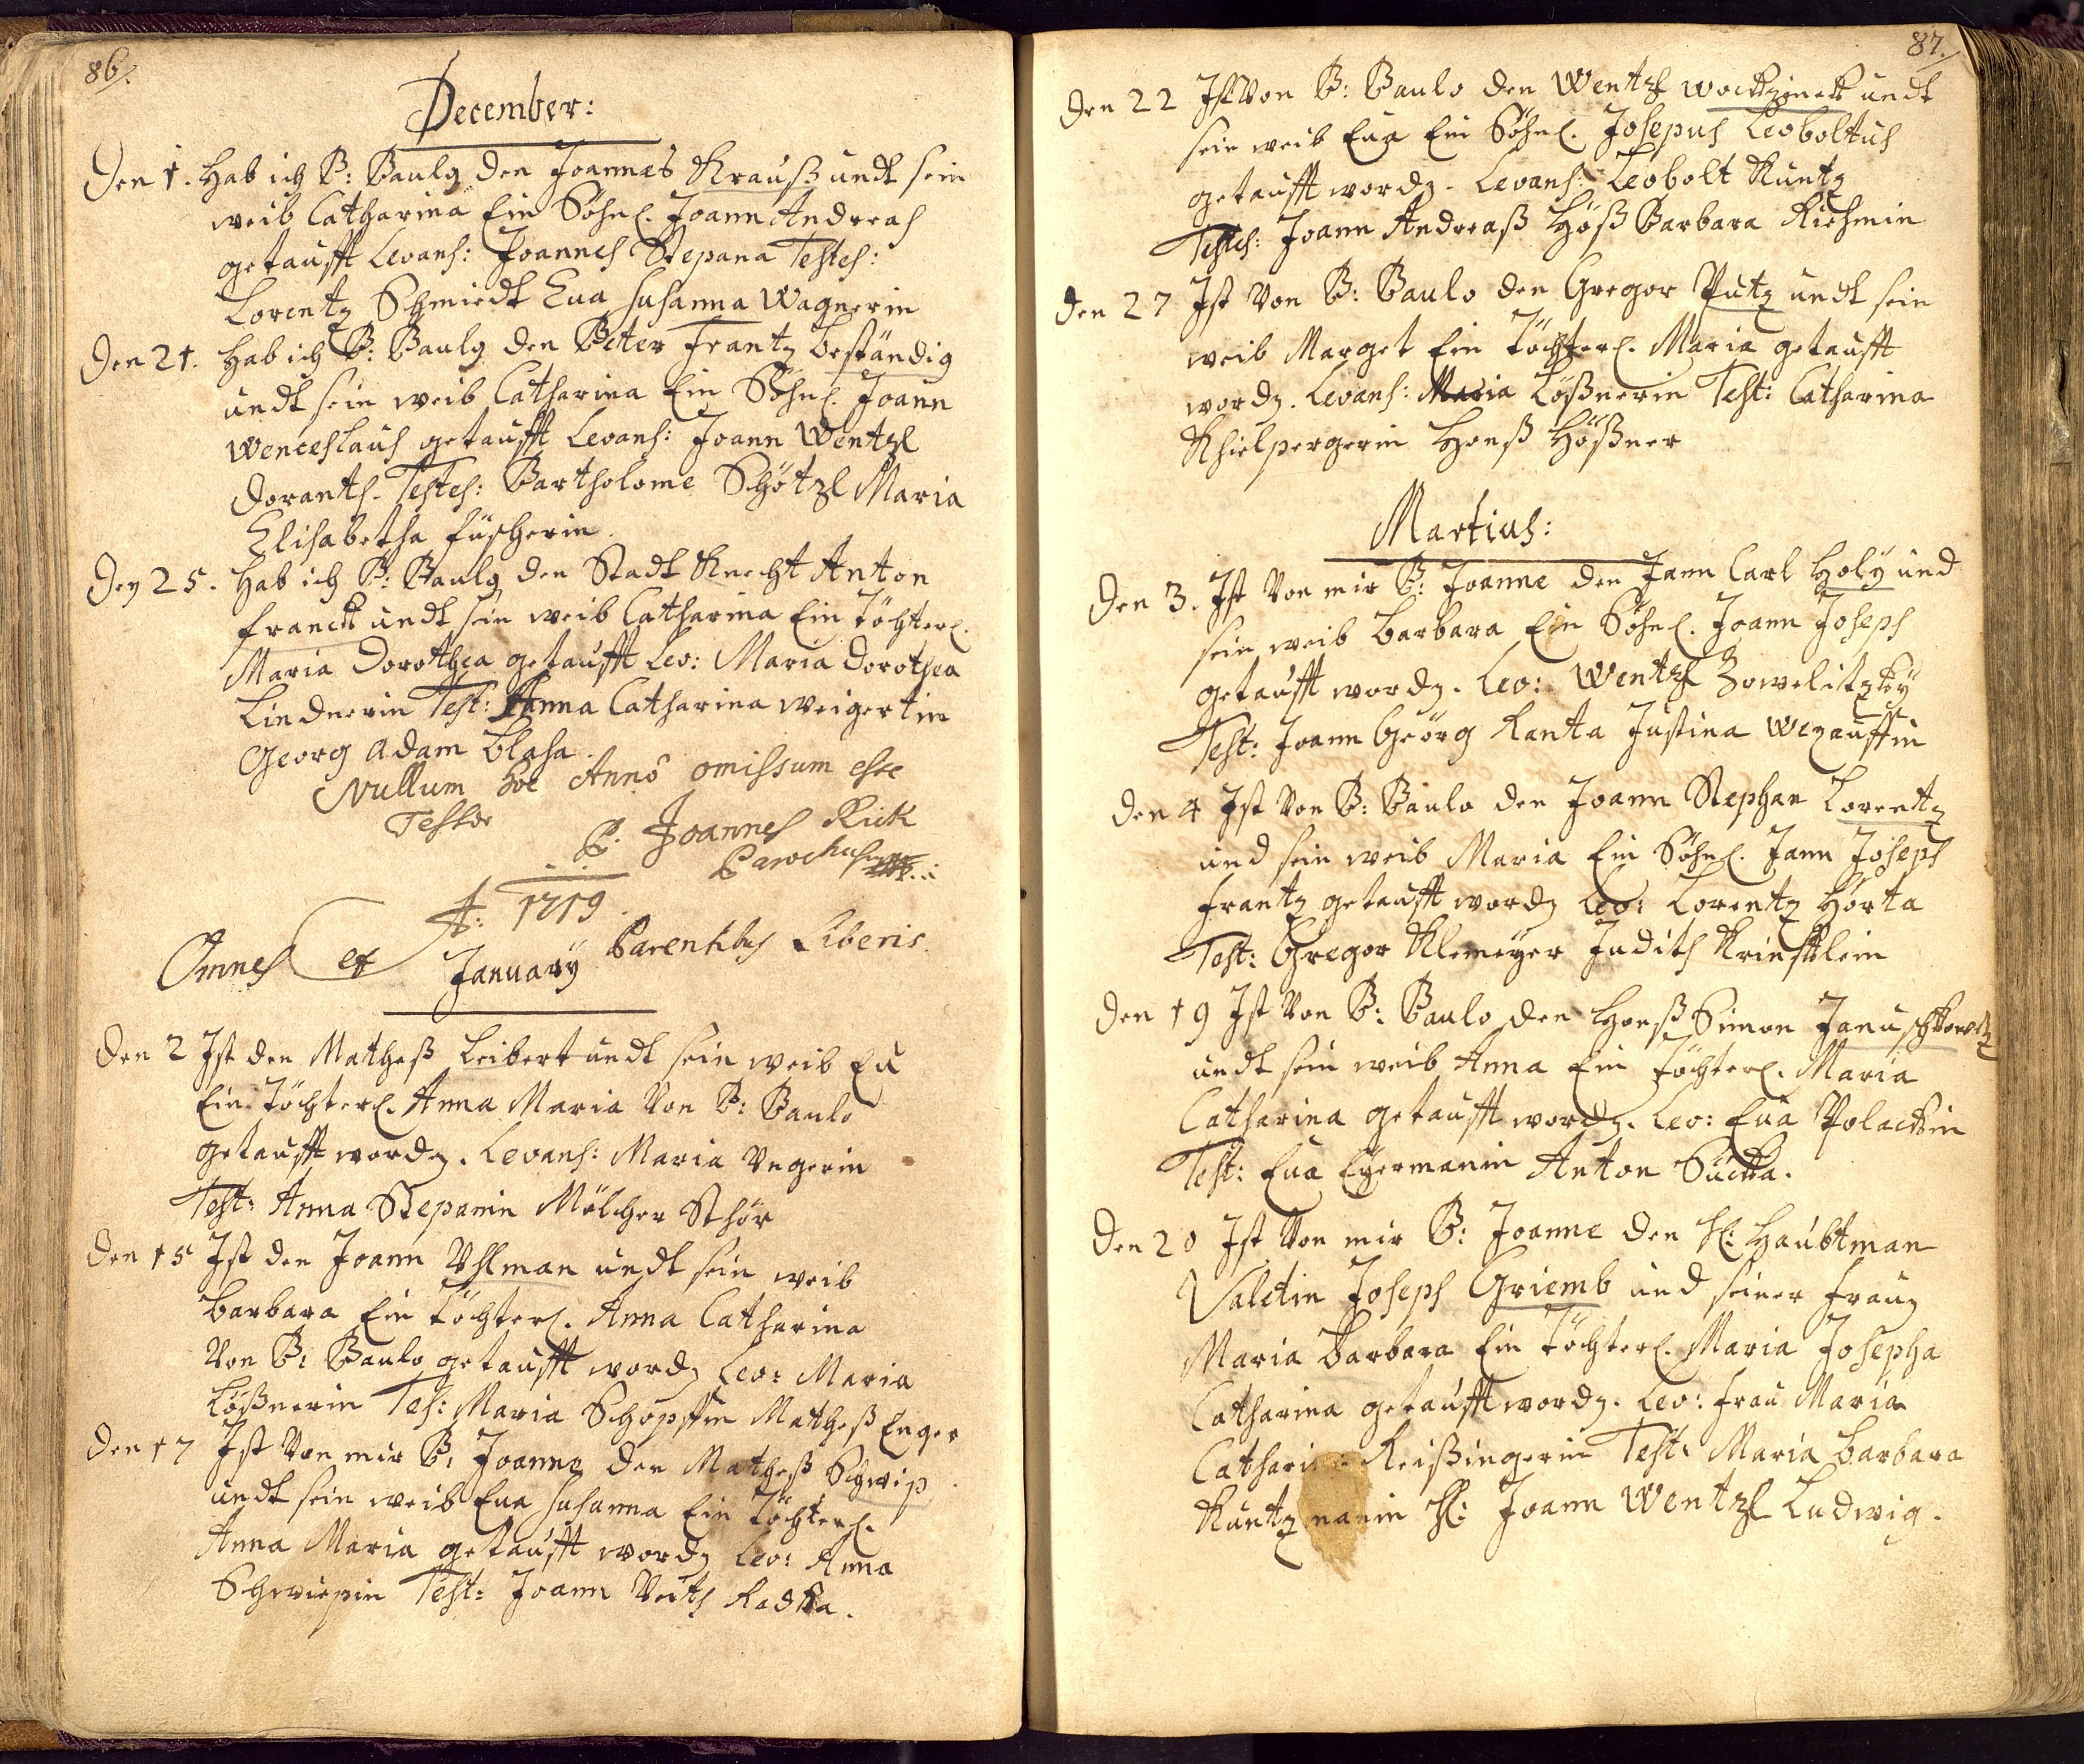 86.
December:
Den 1. Hab ich P: Paulg den Joannes Krauß undt sein
weib Catharina Ein Söhnl. Joann Andreas
getaufft Levans: Joannes Stepana Testes:
Lorentz Schmiedt Eua Susanna Wagnerin
Den 21. Hab ich P: Paulg den Peter Frantz beständig
undt sein weib Catharina Ein Söhnl. Joann
Wenceslaus getaufft Levans: Joann Wentzl
Doranth. Testes: Bartholome Schötzl Maria
Elisabetha füscherin.
Den 25. Hab ich P: Paulg den Stadt Knecht Anton
franck undt sein weib Catharina Ein Töchterl.
Maria Dorothea getaufft Lev: Maria Dorothea
Lindnerin Test: Anna Catharina weigertin
Georg Adam Blaha.
Nullum hoc Anno omissum esse
Testor
P. Joannes Rick
Parochus
A: 1719.
Omnes et Parentibus Liberis.
January
Den 2 Ist den Matheß Leibert undt sein weib Eu
Ein Töchterl. Anna Maria Von P: Paulo
getaufft wordn. Levans: Maria Ungerin
Test: Anna Stepanin Mölcher Sthör
Den 15 Ist den Joann Uhlman undt sein weib
Barbara Ein Töchterl. Anna Catharina
Von P: Paulo getaufft wordn Lev: Maria
Lößnerin Tes: Maria Schopffin Matheß Enger
Den 17 Ist Von mir P: Joanne den Matheß Schwip
undt sein weib Eua Susanna Ein Töchterl.
Anna Maria getaufft wordn Lev: Anna
Schwiepin Test: Joann Veith Radka.
87.
Den 22 Ist Von P: Paulo den Wentzl wocktzineck undt
sein weib Eua Ein Söhnl. Josepus Leoboltus
getaufft wordn. Levans: Leobolt Kuntz
Testes: Joann Andreaß Höß Barbara Riehmin
Den 27 Ist Von P: Paulo den Gregor Putz undt sein
weib Marget Ein Töchterl. Maria getaufft
wordn. Levans: Maria Lößnerin Test: Catharina
Khielpergerin Honß Hößner
Martius:
Den 3. Ist Von mir P: Joanne den Jann Carl Holÿ und
sein weib Barbara Ein Söhnl. Joann Joseph
getaufft wordn. Lev: Wentzl Zowelitzkÿ
Test: Joann Geörg Kanta Justina Wezauffin
Den 4 Ist Von P: Paulo den Joann Stephan Lorentz
und sein weib Maria Ein Söhnl. Jann Joseph
Frantz getaufft wordn Lev: Lorentz Hörta
Test: Gregor Klemeÿer Judith Krinsklein
Den 19 Ist Von P: Paulo den Honß Simon Januschkowitz
undt sein weib Anna Ein Töchterl. Maria
Catharina getaufft wordn. Lev: Eua Polackin
Test: Eua Eÿermanin Anton Sucka.
Den 20 Ist Von mir P: Joanne den H: Haubtman
Valetin Joseph Griemb und seiner Fraun
Maria Barbara Ein Töchterl. Maria Josepha
Catharina getaufft wordn. Lev: Frau Maria
Catharina Reißingerin Test: Maria Barbara
Kuntzmanin H: Joann Wentzl Ludwig.